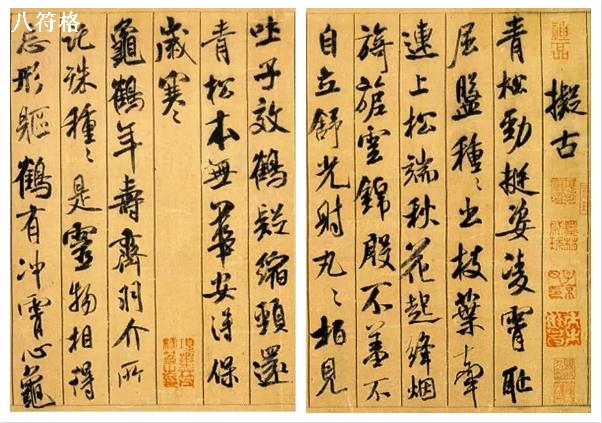 八符格
擬古
青松勁挺姿凌霄恥
屈盤種〻出枝葉牽
連上松端秋花起絳烟
旖旎雲錦殷不羞不
自立舒光射丸〻柏見
吐子效鶴疑縮頸還
青松本無華安得保
歲寒〻
龜鶴年壽齊羽介所
託殊種〻是靈物相得
忘形軀鶴有冲霄心龜